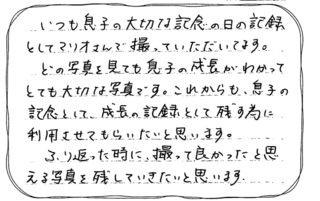 いつも息子の大切な記念の日の記録
としてマリオさんで撮っていただいてます。
どの写真を見ても息子の成長がわかって
とても大切な写真です。これからも、息子の
記念として、成長の記録として残す為に
利用させてもらいたいと思います。
ふり返った時に、撮って良かったと思
える写真を残していきたいと思います。